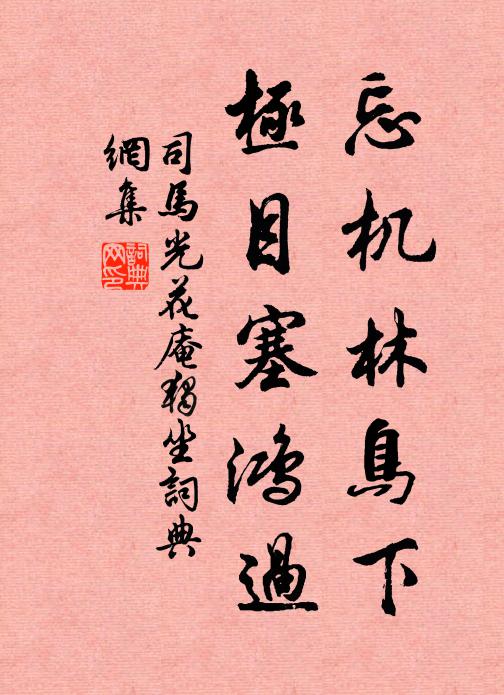 忘机林鳥下
極目塞鴻過
司馬光花庵獨坐詞典
網集
詞典
网印